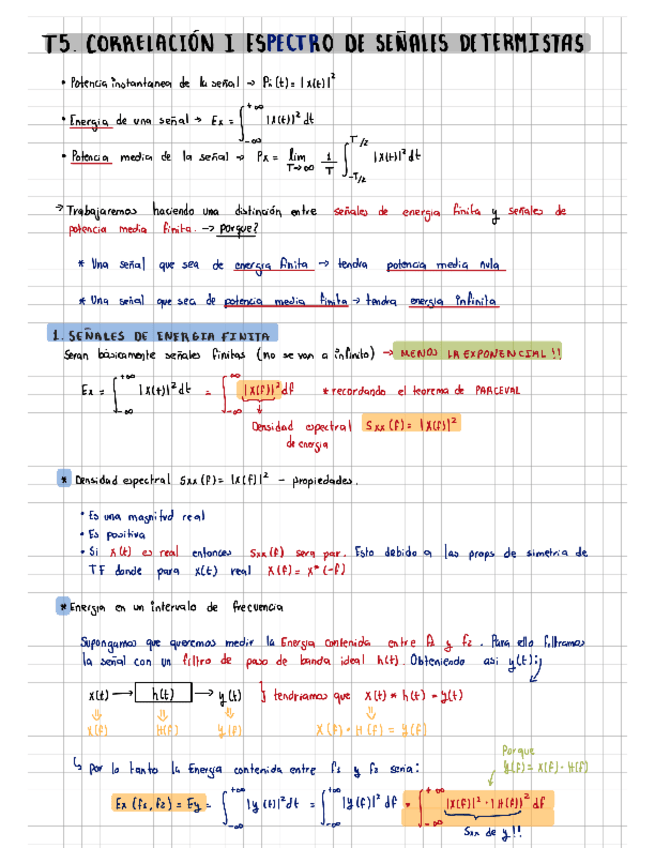 T5. CORRELACIÓN I ESPECTRO DE SEÑALES DETERMISTAS
• Potencia instantanea de la señal → Pi(t) = |x(t)|²
• Energia de una señal → Ex = ∫_{-∞}^{+∞} |x(t)|² dt
• Potencia media de la señal → Px = lim_{T→∞} 1/T ∫_{-T/2}^{T/2} |x(t)|² dt
→ Trabajaremos haciendo una distinción entre señales de energia finita y señales de
potencia media finita. → porque?
* Una señal que sea de energia finita → tendra potencia media nula
* Una señal que sea de potencia media finita → tendra energia infinita
1. SEÑALES DE ENERGIA FINITA
Seran básicamente señales finitas (no se van a infinito) → MENOS LA EXPONENCIAL!!
Ex = ∫_{-∞}^{+∞} |x(t)|² dt = ∫_{-∞}^{∞} |X(f)|² df * recordando el teorema de PARCEVAL
Densidad espectral Sxx(f) = |X(f)|²
de energia
* Densidad espectral Sxx(f) = |X(f)|² - propiedades.
• Es una magnitud real
• Es positiva
• Si x(t) es real entonces Sxx(f) sera par. Esto debido a las props de simetria de
TF donde para x(t) real X(f) = X*(-f)
* Energia en un intervalo de frecuencia
Supongamos que queremos medir la Energia contenida entre f1 y f2. Para ello filtramos
la señal con un filtro de paso de banda ideal h(t). Obteniendo asi y(t):
x(t) → h(t) → y(t) } tendriamos que x(t) * h(t) = y(t)
X(f) H(f) Y(f) X(f) · H(f) = Y(f)
Porque
Y(f) = X(f) · H(f)
↳ por lo tanto la Energia contenida entre f1 y f2 seria:
Ex(f1, f2) = Ey = ∫_{-∞}^{+∞} |y(t)|² dt = ∫_{-∞}^{+∞} |Y(f)|² df = ∫_{-∞}^{+∞} |X(f)|² · |H(f)|² df
Sxx de y!!